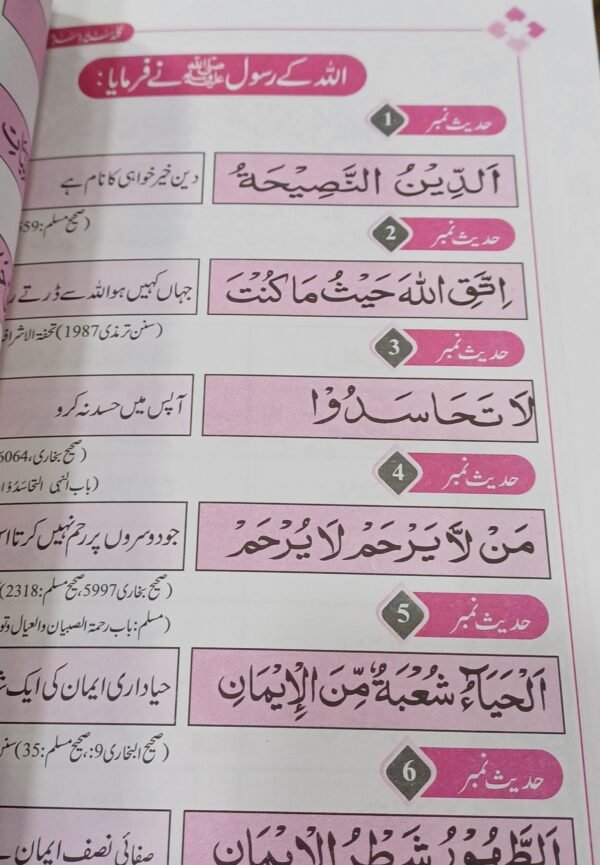 اللہ کے رسول ﷺ نے فرمایا:
حدیث نمبر 1
اَلدِّيْنُ النَّصِيْحَةُ
دین خیر خواہی کا نام ہے
(صحیح مسلم:
حدیث نمبر 2
اِتَّقِ اللهَ حَيْثُ مَا كُنْتَ
جہاں کہیں ہو اللہ سے ڈرتے
(سنن ترمذی 1987) تحفۃ الاشراف
حدیث نمبر 3
لَا تَحَاسَدُوْا
آپس میں حسد نہ کرو
(صحیح بخاری، 6064
(باب النہی التحاسد و
حدیث نمبر 4
مَنْ لَّا يَرْحَمْ لَا يُرْحَمْ
جو دوسروں پر رحم نہیں کرتا
(صحیح بخاری 5997، صحیح مسلم: 2318)
(مسلم: باب رحمۃ الصبیان والعیال
حدیث نمبر 5
اَلْحَيَآءُ شُعْبَةٌ مِّنَ الْإِيْمَانِ
حیاداری ایمان کی ایک
(صحیح البخاری 9:، صحیح مسلم: 35)
حدیث نمبر 6
اَلطُّهُوْرُ شَطْرُ الْإِيْمَانِ
صفائی نصف ایمان